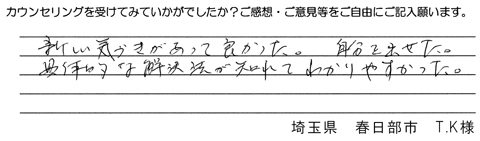 カウンセリングを受けてみていかがでしたか？ご感想・ご意見等をご自由にご記入願います。
新しい気づきがあって良かった。 自分で出せた。
具体的な解決法が知れてわかりやすかった。
埼玉県 春日部市 T.K様